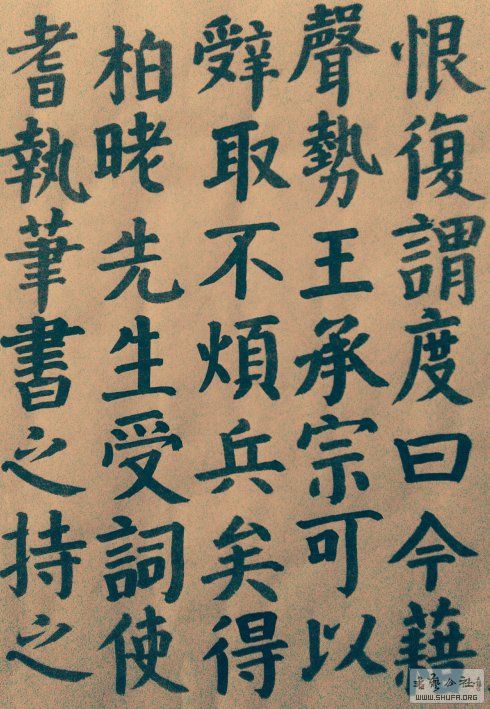 恨復謂度曰今藉
聲勢王承宗可以
辤取不煩兵矣得
柏耆先生受詞使
耆執筆書之持之
WWW.SHUFA.ORG